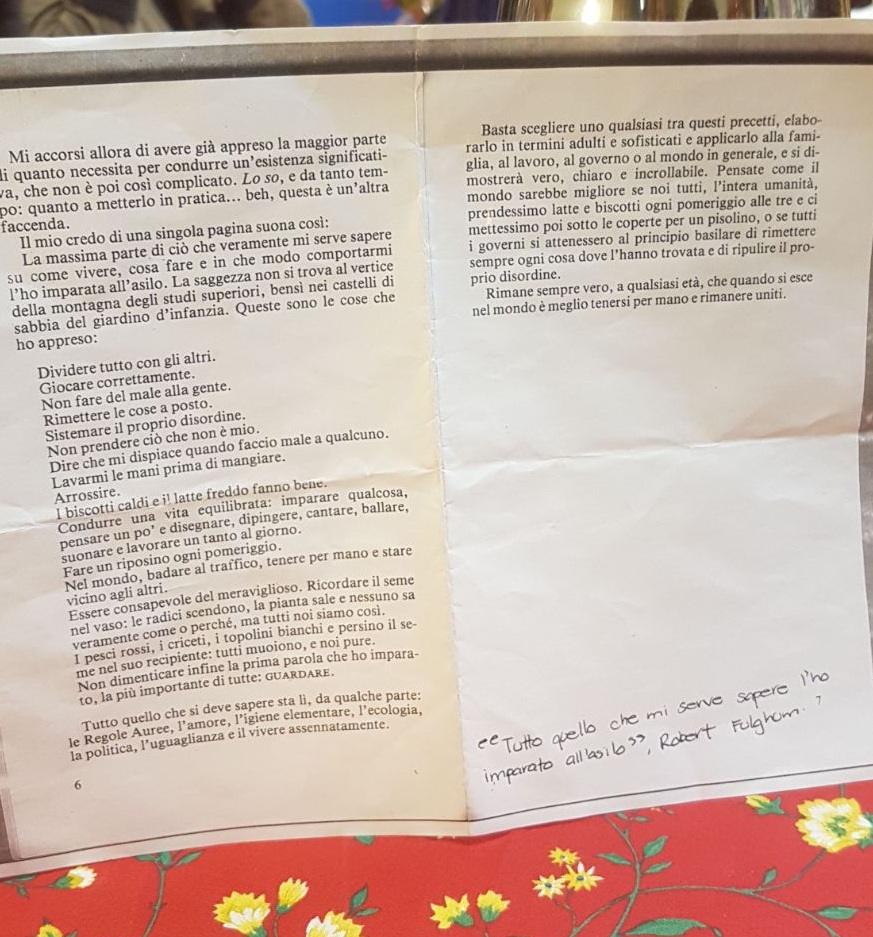 Mi accorsi allora di avere già appreso la maggior parte
di quanto necessita per condurre un'esistenza significati-
va, che non è poi così complicato. Lo so, e da tanto tem-
po: quanto a metterlo in pratica... beh, questa è un'altra
faccenda.
Il mio credo di una singola pagina suona così:
La massima parte di ciò che veramente mi serve sapere
su come vivere, cosa fare e in che modo comportarmi
l'ho imparata all'asilo. La saggezza non si trova al vertice
della montagna degli studi superiori, bensì nei castelli di
sabbia del giardino d'infanzia. Queste sono le cose che
ho appreso:
Dividere tutto con gli altri.
Giocare correttamente.
Non fare del male alla gente.
Rimettere le cose a posto.
Sistemare il proprio disordine.
Non prendere ciò che non è mio.
Dire che mi dispiace quando faccio male a qualcuno.
Lavarmi le mani prima di mangiare.
Arrossire.
I biscotti caldi e il latte freddo fanno bene.
Condurre una vita equilibrata: imparare qualcosa,
pensare un po' e disegnare, dipingere, cantare, ballare,
suonare e lavorare un tanto al giorno.
Fare un riposino ogni pomeriggio.
Nel mondo, badare al traffico, tenere per mano e stare
vicino agli altri.
Essere consapevole del meraviglioso. Ricordare il seme
nel vaso: le radici scendono, la pianta sale e nessuno sa
veramente come o perché, ma tutti noi siamo così.
I pesci rossi, i criceti, i topolini bianchi e persino il se-
me nel suo recipiente: tutti muoiono, e noi pure.
Non dimenticare infine la prima parola che ho impara-
to, la più importante di tutte: GUARDARE.
Tutto quello che si deve sapere sta lì, da qualche parte:
le Regole Auree, l'amore, l'igiene elementare, l'ecologia,
la politica, l'uguaglianza e il vivere assennatamente.
6
Basta scegliere uno qualsiasi tra questi precetti, elabo-
rarlo in termini adulti e sofisticati e applicarlo alla fami-
glia, al lavoro, al governo o al mondo in generale, e si di-
mostrerà vero, chiaro e incrollabile. Pensate come il
mondo sarebbe migliore se noi tutti, l'intera umanità,
prendessimo latte e biscotti ogni pomeriggio alle tre e ci
mettessimo poi sotto le coperte per un pisolino, o se tutti
i governi si attenessero al principio basilare di rimettere
sempre ogni cosa dove l'hanno trovata e di ripulire il pro-
prio disordine.
Rimane sempre vero, a qualsiasi età, che quando si esce
nel mondo è meglio tenersi per mano e rimanere uniti.
“Tutto quello che mi serve sapere l'ho
imparato all'asilo”, Robert Fulghum.